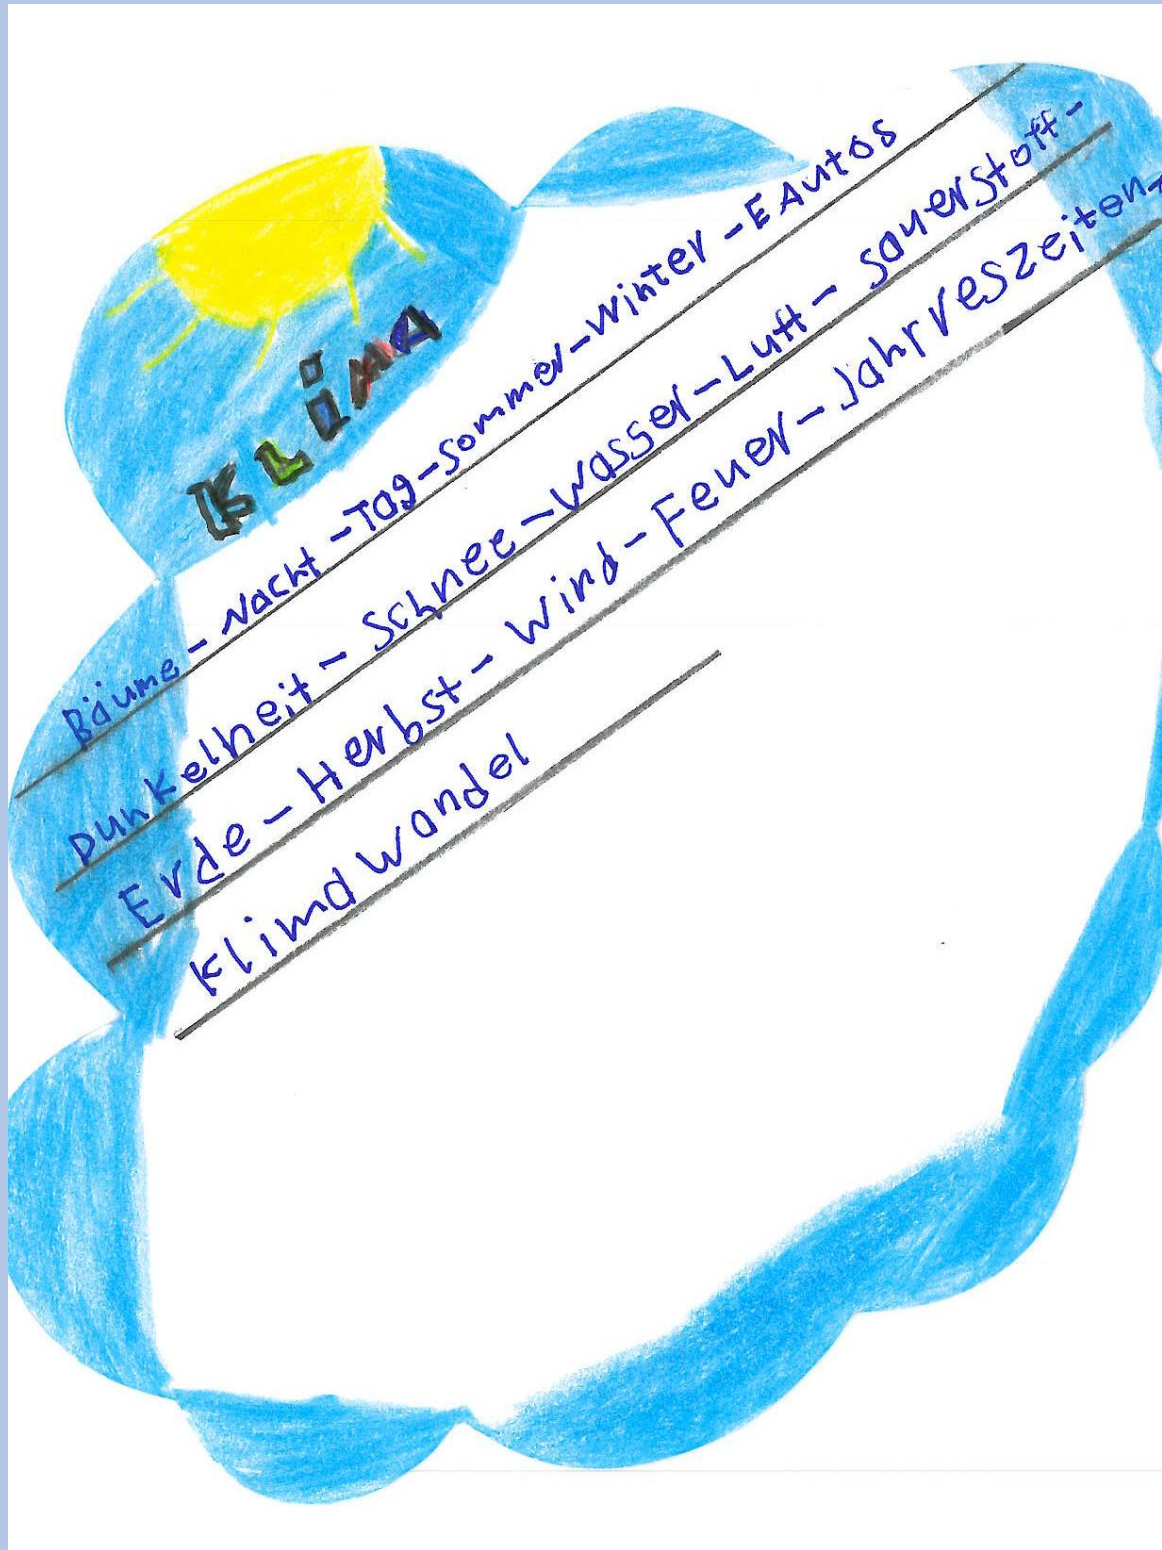 KLiMA
Bäume - Nacht - Tag - Sommer - Winter - E Autos
Dunkelheit - Schnee - Wasser - Luft - Sauerstoff -
Erde - Herbst - Wind - Feuer - Jahrreszeiten -
Klimawandel